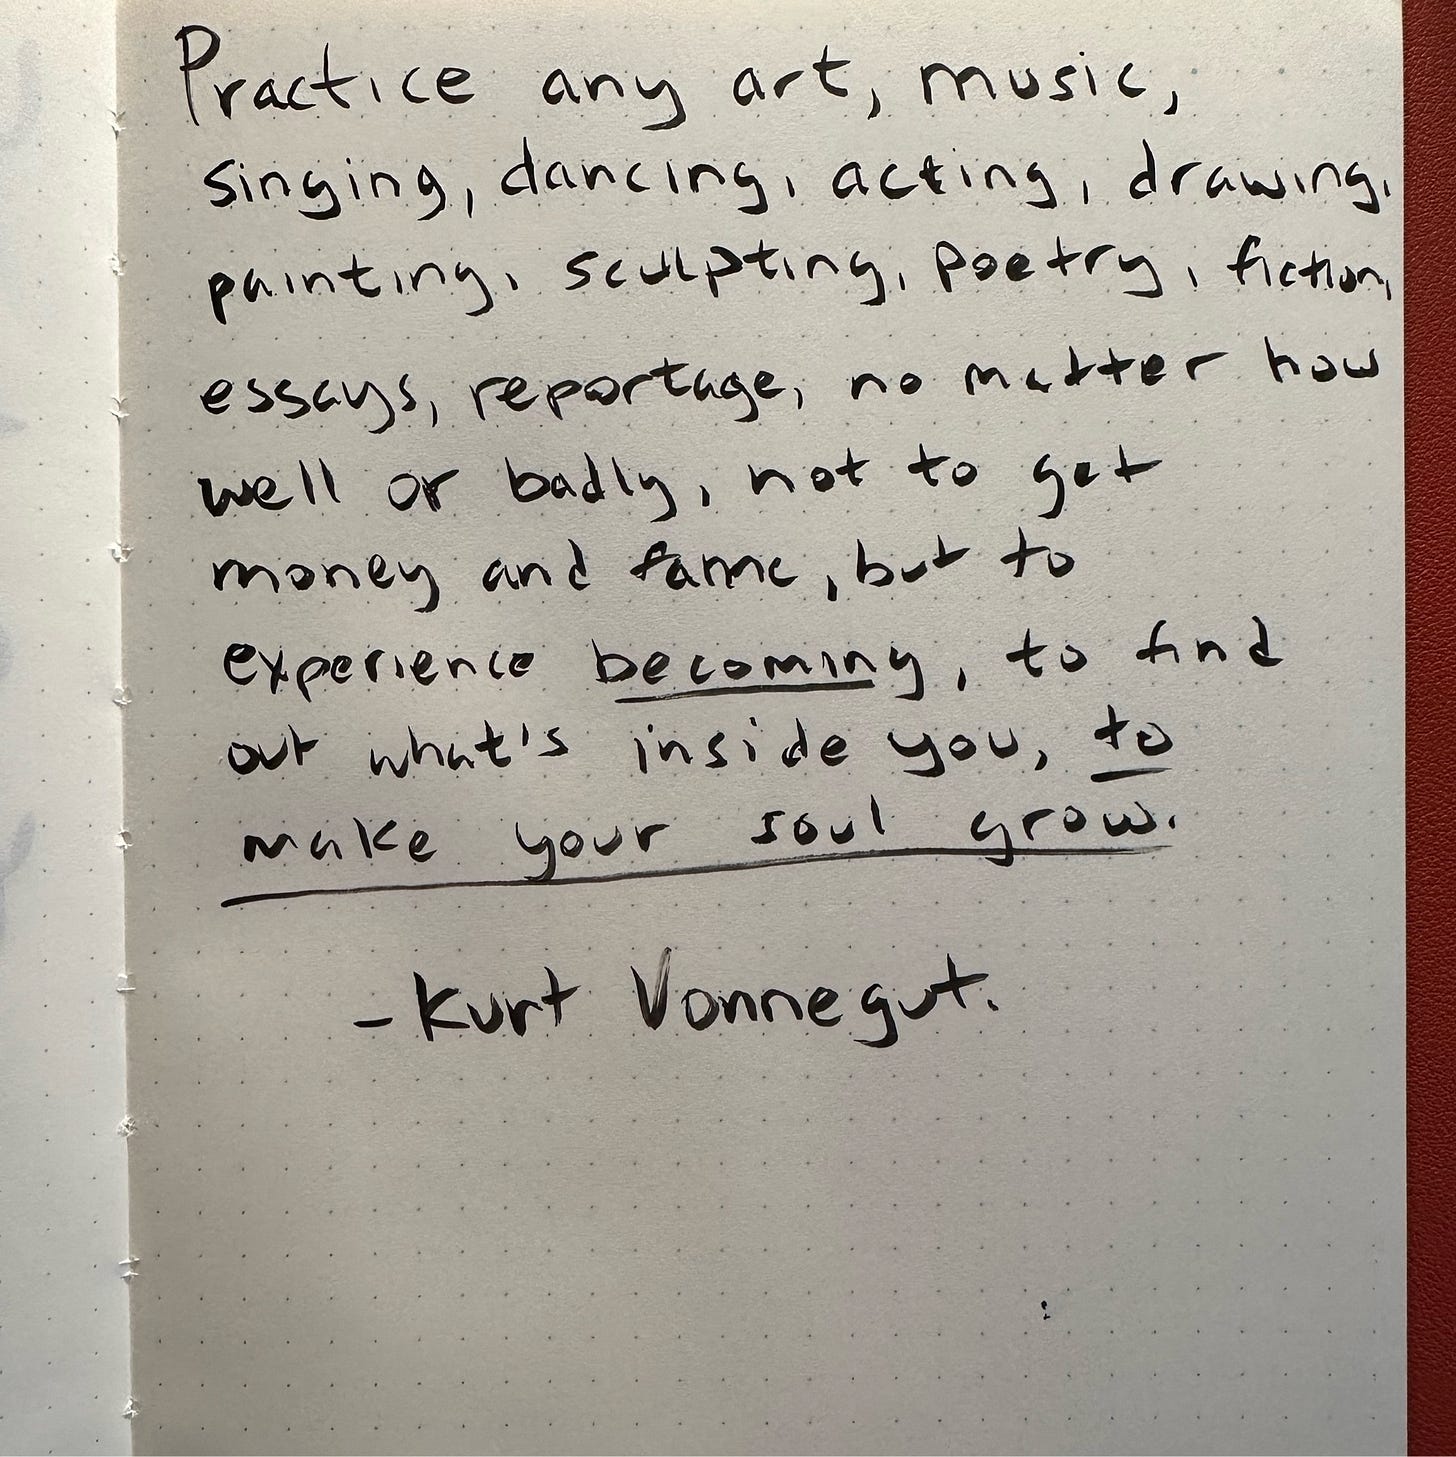 Practice any art, music,
singing, dancing, acting, drawing,
painting, sculpting, poetry, fiction,
essays, reportage, no matter how
well or badly, not to get
money and fame, but to
experience becoming, to find
out what's inside you, to
make your soul grow.
- Kurt Vonnegut.